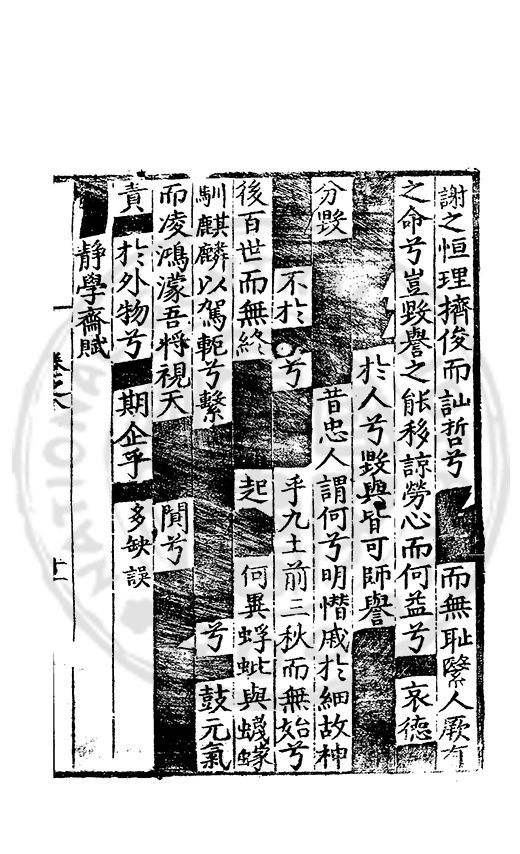 謝之恒理擠俊而訕哲兮 而無耻緊人厥有
之命兮豈毀譽之能移諒勞心而何益兮 哀德
於人兮毀與皆可師譽
分毀 昔忠人謂何兮明憯戚於細故神
不於 兮 乎九土前三秋而無始兮
後百世而無終 起 何異蜉蚍與蠛蠓
馴麒麟以駕軛兮繫 兮 鼓元氣
而凌鴻濛吾將視天 聞兮
責 於外物兮 期企乎 多缺誤
靜學齋賦
十一
NATIONAL